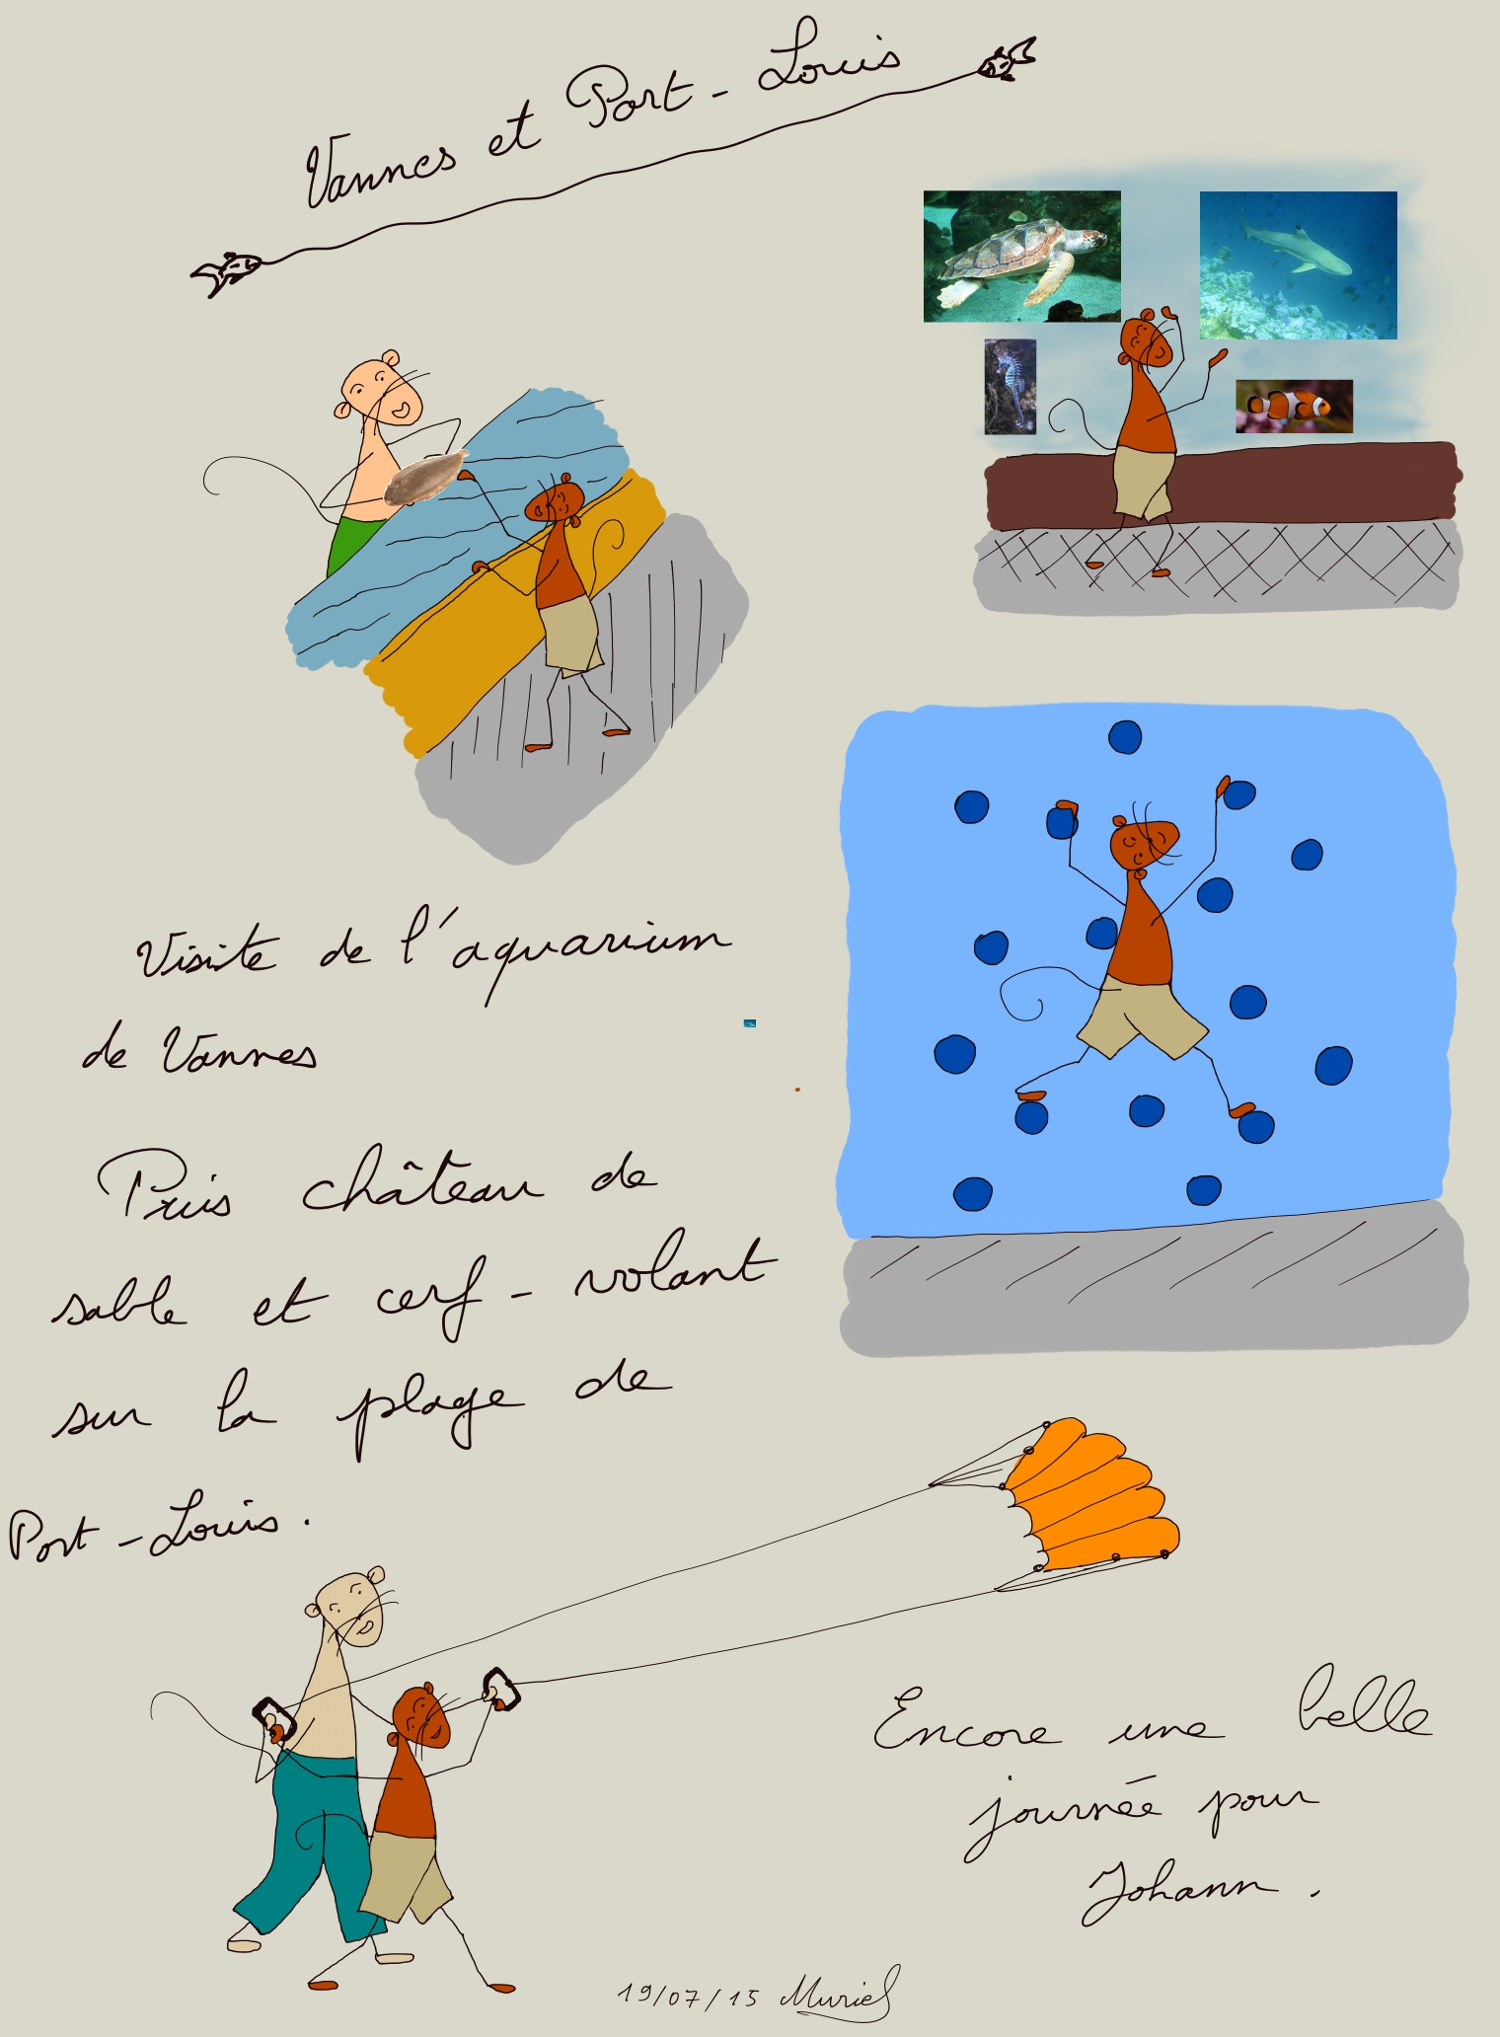 Vannes et Port-Louis
Visite de l'aquarium
de Vannes
Puis château de
sable et cerf-volant
sur la plage de
Port-Louis.
Encore une belle
journée pour
Johann.
19/07/15 Muriel